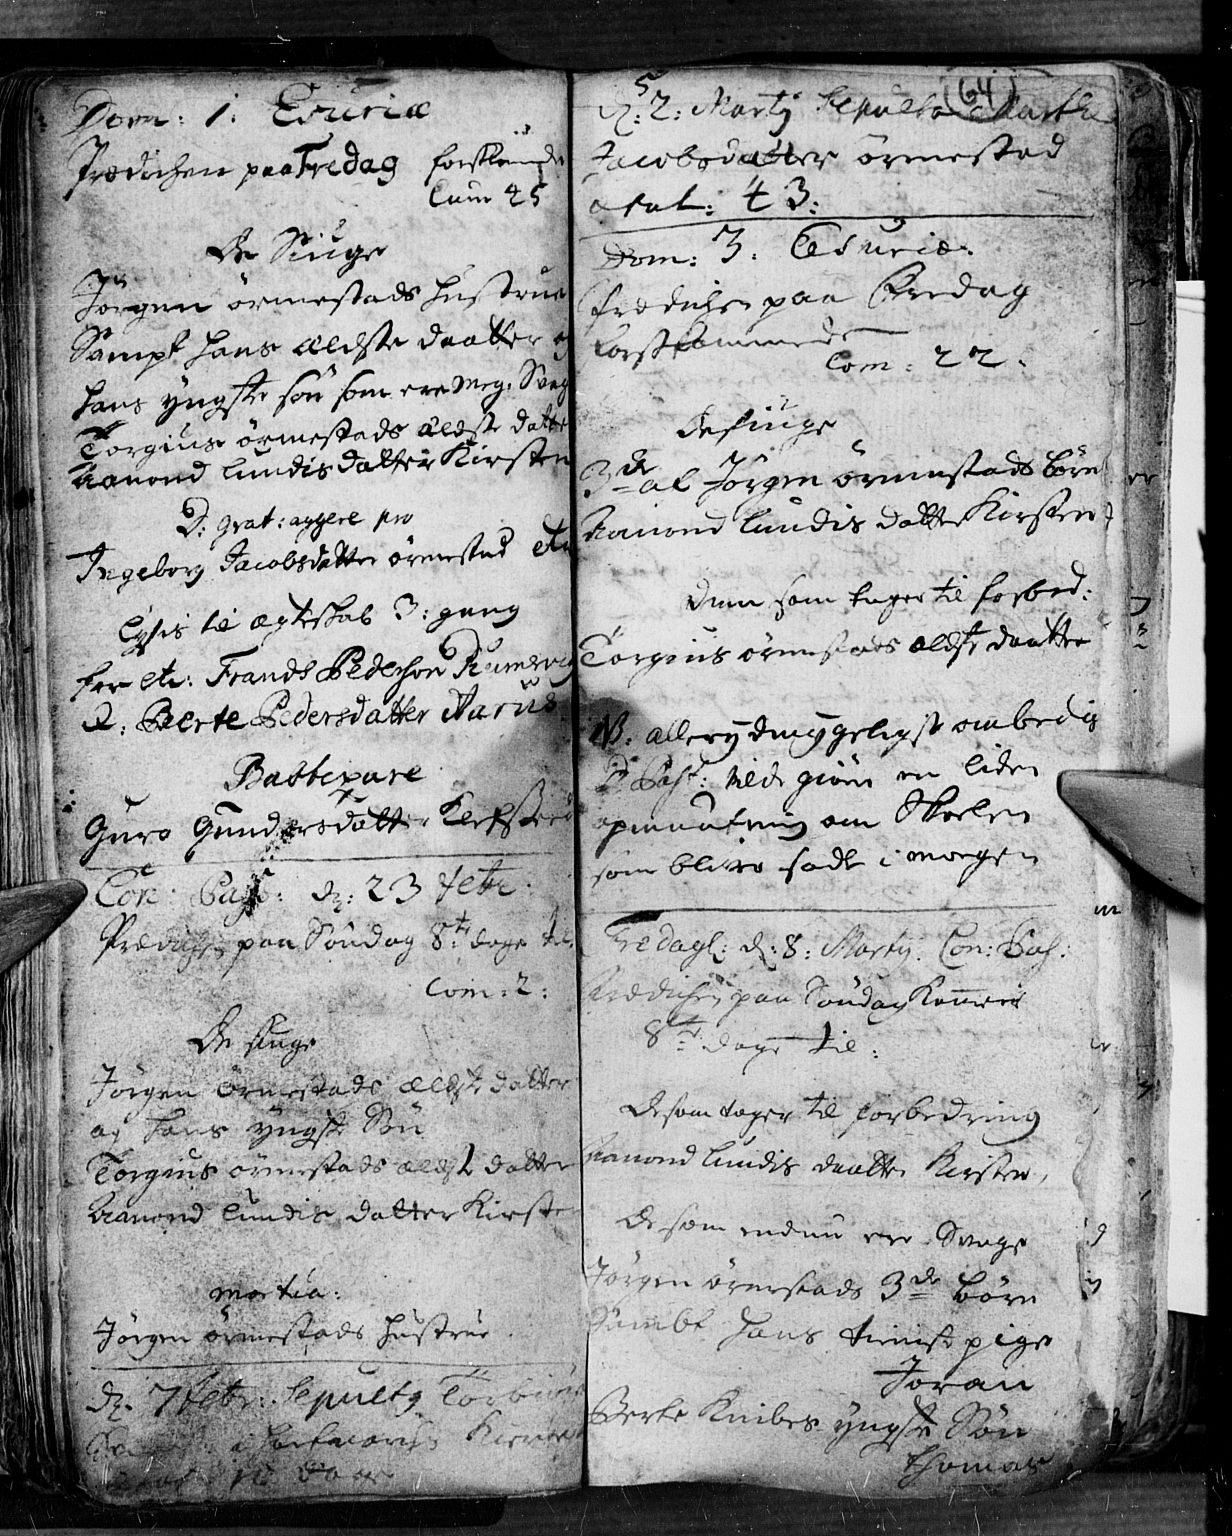 Dom: 1. Esuriæ
Prædichen paa Fredag forstkom̄ende
Com 45
De Siuge
Jörgen örmestads Hustrue
Sampt hans ældste daatter og
hans yngste sön som ere meg: Svag
Torgius örmestads ældste datter
Aamond Lundis datter Kirsten
D: grat: aggere pro
Ingeborg Jacobsdatter örmestad
Lysis til ægteskab 3: gang
for etc: Frands Pedersen
D: Berte Pedersdatter Aariis
Babtezare
Guro Gundersdatter
Con: Pass: dz: 23 Febr:
Prædichen paa Söndag 8te dage til
Com: 2:
De siuge
Jörgen örmestads ældste datter
og hans yngste Sön
Torgius örmestads ældst datter
Aamond Lundis datter Kirsten
mortua:
Jörgen örmestads hustrue
dz. 7 Febr: Sepulty
64
dz: 5 2: Marty Sepulta Marthe
Jacobsdatter örmestad
ætat: 43:
Dom: 3. Esuriæ:
Prædichen paa Fredag
forstkommende
Com: 22.
De siuge
3de af Jörgen örmestads börn
Aamond Lundis datter Kirsten
Dem som tager til forbed:
Torgius örmestads ældste daatter
NB. allerydmygeligst ombedis
D Past: vilde giöre en liden
opmuntring om Skolen
som blive sadt i morgen
Fredag: d: 8: Marty. Con: Pas:
Prædichen paa Söndag
8te dage til:
De som tager til forbedring
Aamond Lundis daatter Kirsten,
De som endnu ere Svage
Jörgen örmestads 3de börn
Sambt hans tieniste pige
Joran
Berte Knibes yngste Sön
Thomas